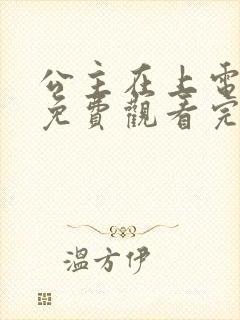 公主在上電
免費觀看完
溫方伊